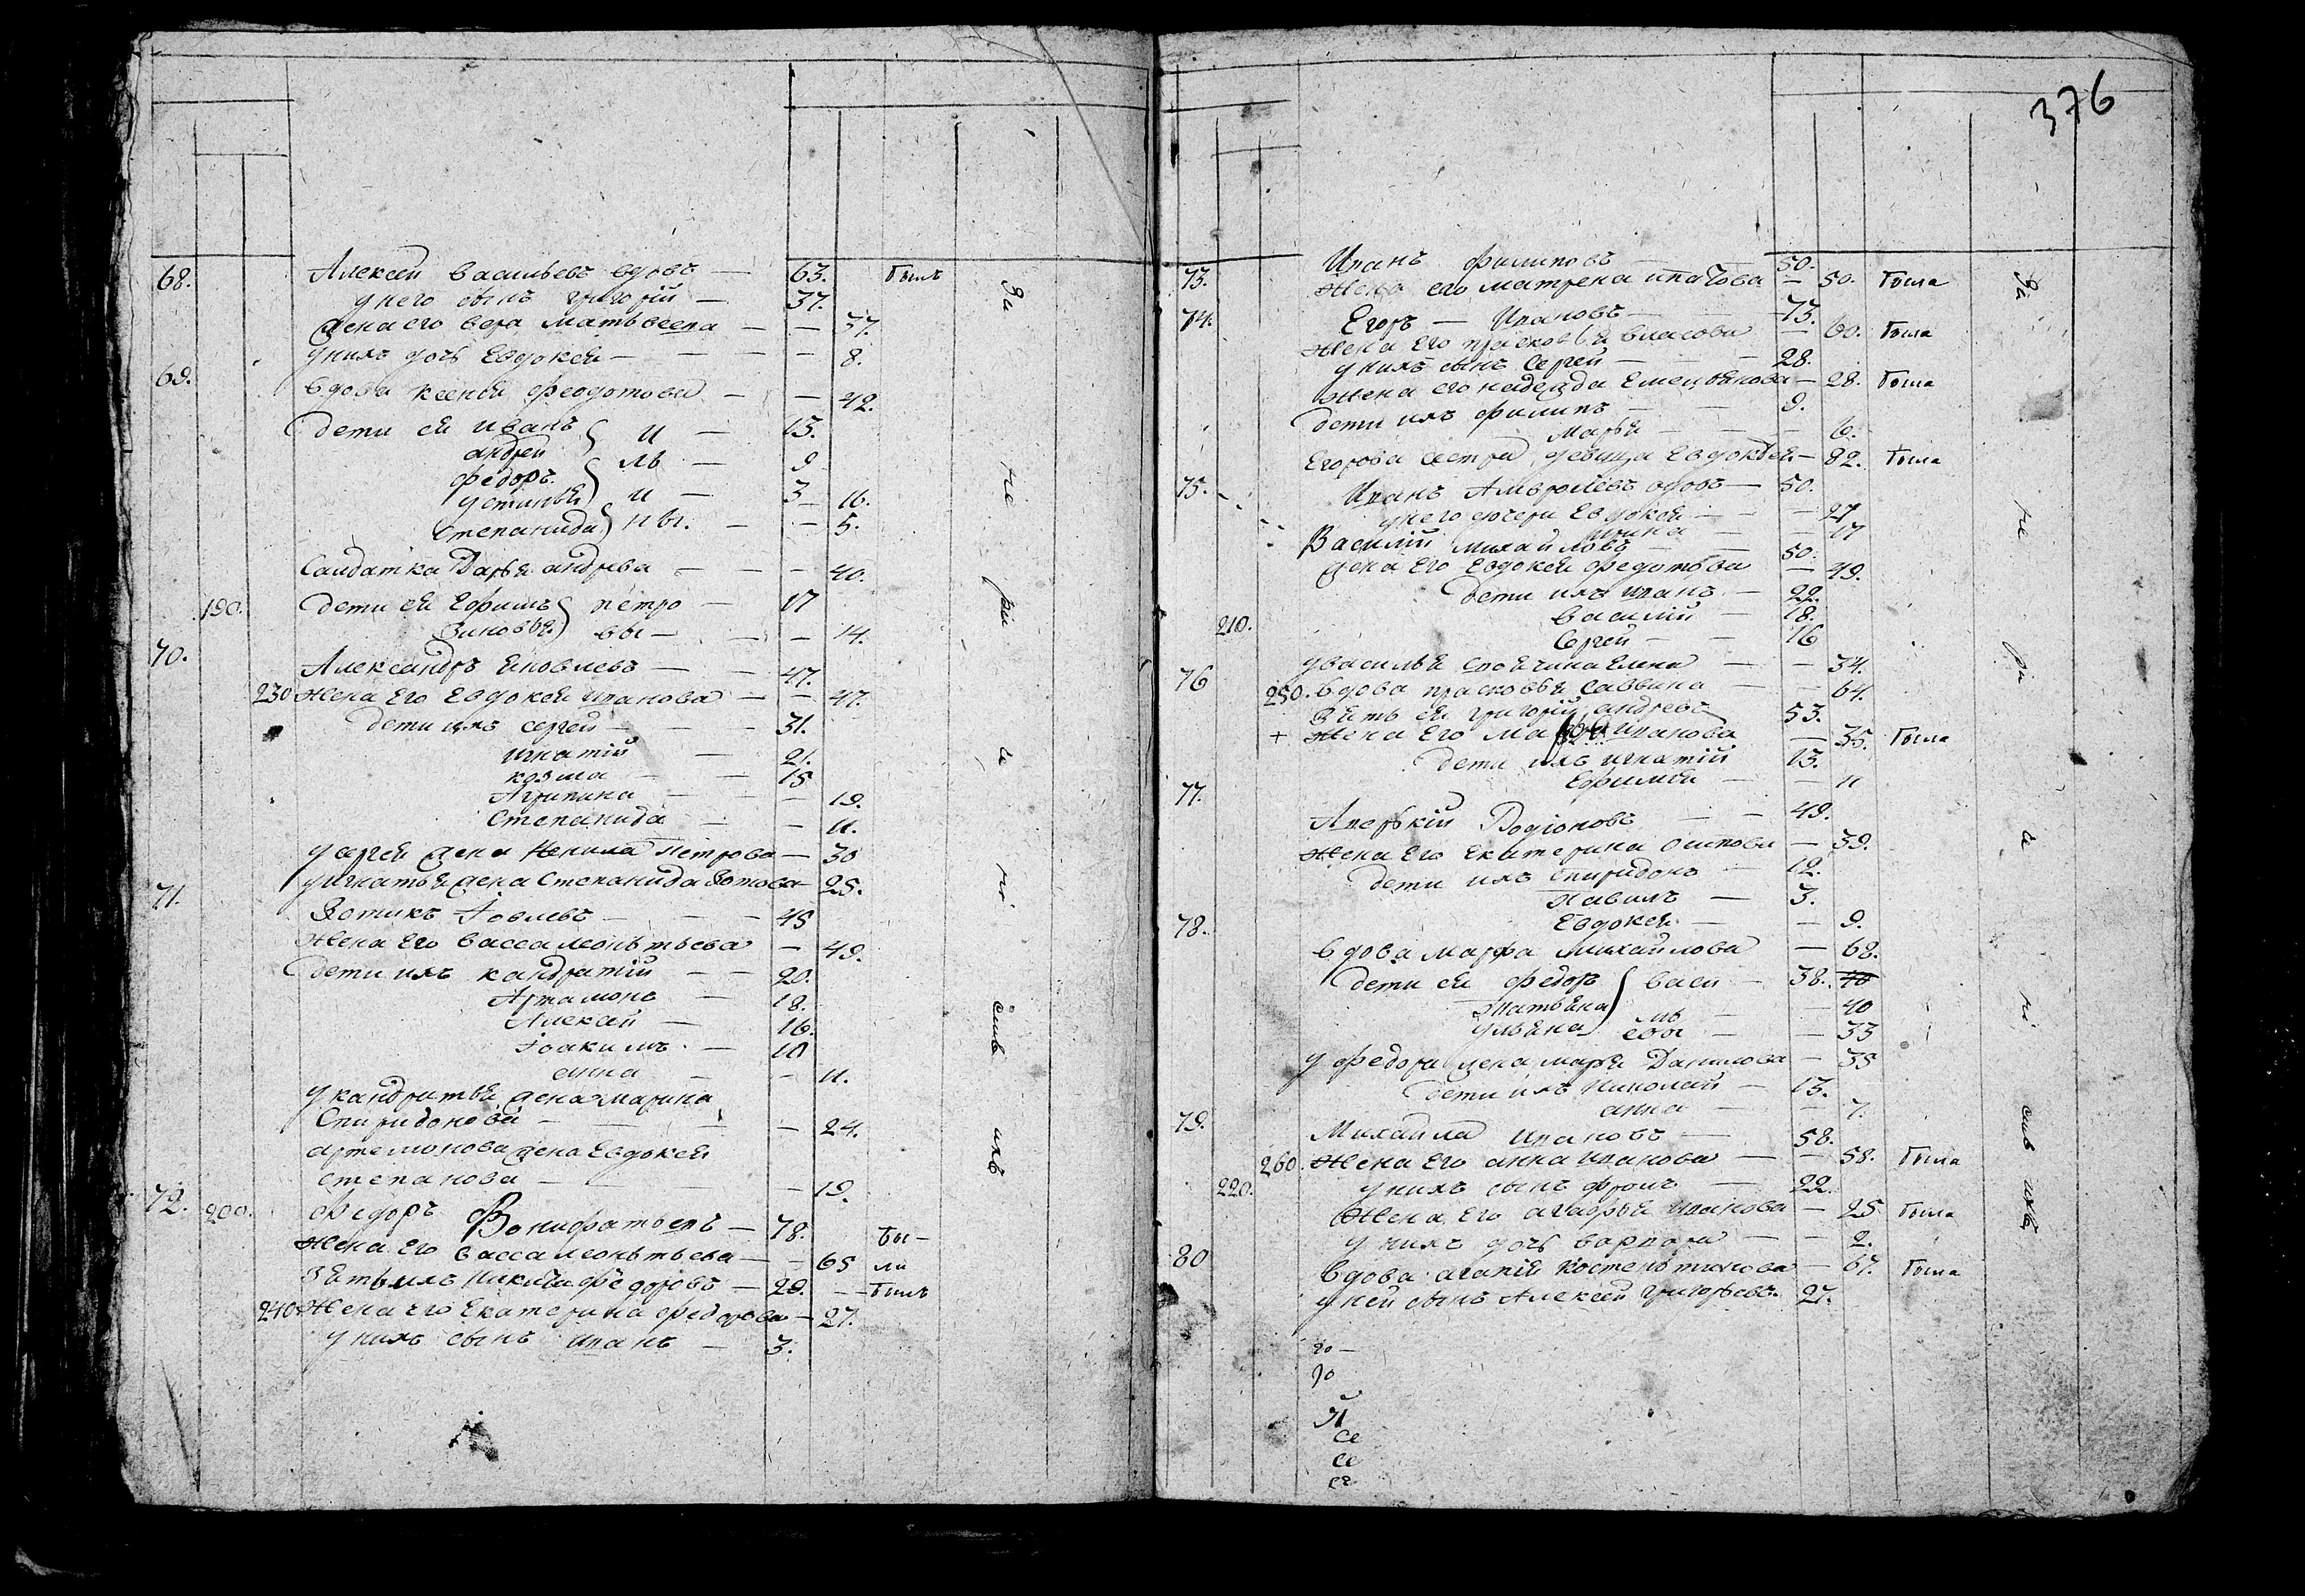 68. Алексей васильевъ вдовъ — 63. былъ
у него сынъ григорiй — 37.
жена его вера матьвеева — — 37.
у нихъ дочь Евдокея — — — 8.
69. вдова ксенья федотова — — 42.
дети ея иванъ } и — 15.
андрей
федоръ } ль — 9
устинья } и — 3 — 16.
степанида } ны. — — 5.
Салдатка Дарья андрева — — 40.
190. дети ея Ефимъ } петро — 17
Зиновья } вы — — — 14.
70. Александръ яковлевъ — — 47.
230 жена Его Евдокея иванова — — 47.
дети ихъ сергей — — — 31.
игнатiй — 21.
козма — — 15
Агрипина — — — 19.
Степанида — — 11.
у сергея жена Ненила петрова — 30
у игнатья жена Степанида Зотова — 25.
71. Зотикъ Iовлевъ — — — 45
жена Его васса леоньтьева — 49.
дети ихъ кандратiй — — 20.
Артамонъ — 18.
Алексей — 16.
Iоакимъ — 10
анна — — 11.
у кандратья жена марина
Спиридонова — — — — 24.
артемонова жена Евдокея
степанова — — — 19.
72. 200. Федоръ Вонифатьевъ — 78. бы —
жена Его васса леоньтьева — — 65 ли
Зять ихъ никита федоровъ — 29. — былъ
240 жена его Екатерина федорова — 27.
у нихъ сынъ иванъ — 3.
За
не
рѣ
и
нi
емъ
ихъ
376
73. Иванъ филиповъ — 50.
жена его матрена ипатова — 50. была
74. Егоръ — Ивановъ — 73.
жена Его прасковья власова — 60. была
у нихъ сынъ Сергей — — 28.
жена его надежда Емельянова — 28. была
дети ихъ филипъ — — 9.
марья — — — 6.
Егорова сестра девица Евдокѣя — 82. была
75. Иванъ Амвросiевъ вдовъ — 50.
у него дочери Евдокея — — — 27
ирина — — 17
Василiй михайловъ — 50.
жена Его Евдокея федотова — 49.
дети ихъ иванъ — 22.
210. василiй — 18.
Сергей — — 16
у василья своячина Елена — — 34.
76 250. вдова прасковья саввина — — 64.
Зять ея григорiй андревъ — 53.
+ жена Его иванова — 35. была
дети ихъ игнатiй 13.
Ефимья — — 11
77. Аверкiй Родiоновъ — — 49.
жена Его Екатерина осипова — 39.
дети ихъ спиридонъ — 12.
павилъ — 3.
Евдокея — — 9.
78. вдова марфа михайлова — 68.
дети ея федоръ } васи — 38. 40
татьяна } ль — — 40
ульяна евы — — 33
у федора жена марья Данилова — 35
дети ихъ николай — 13.
анна — — 7.
79. михаила ивановъ — 58.
260. жена Его анна иванова — — 58. была
220. у нихъ сынъ фролъ — 22.
жена Его агафья иванова — 25 была
у нихъ дочь варвара — — 2.
80 вдова агапия костеньтинова — 67. была
у ней сынъ Алексей григорьевъ. 27.
За
не
рѣ
и
нi
емъ
ихъ
го —
го
й
се
се
се